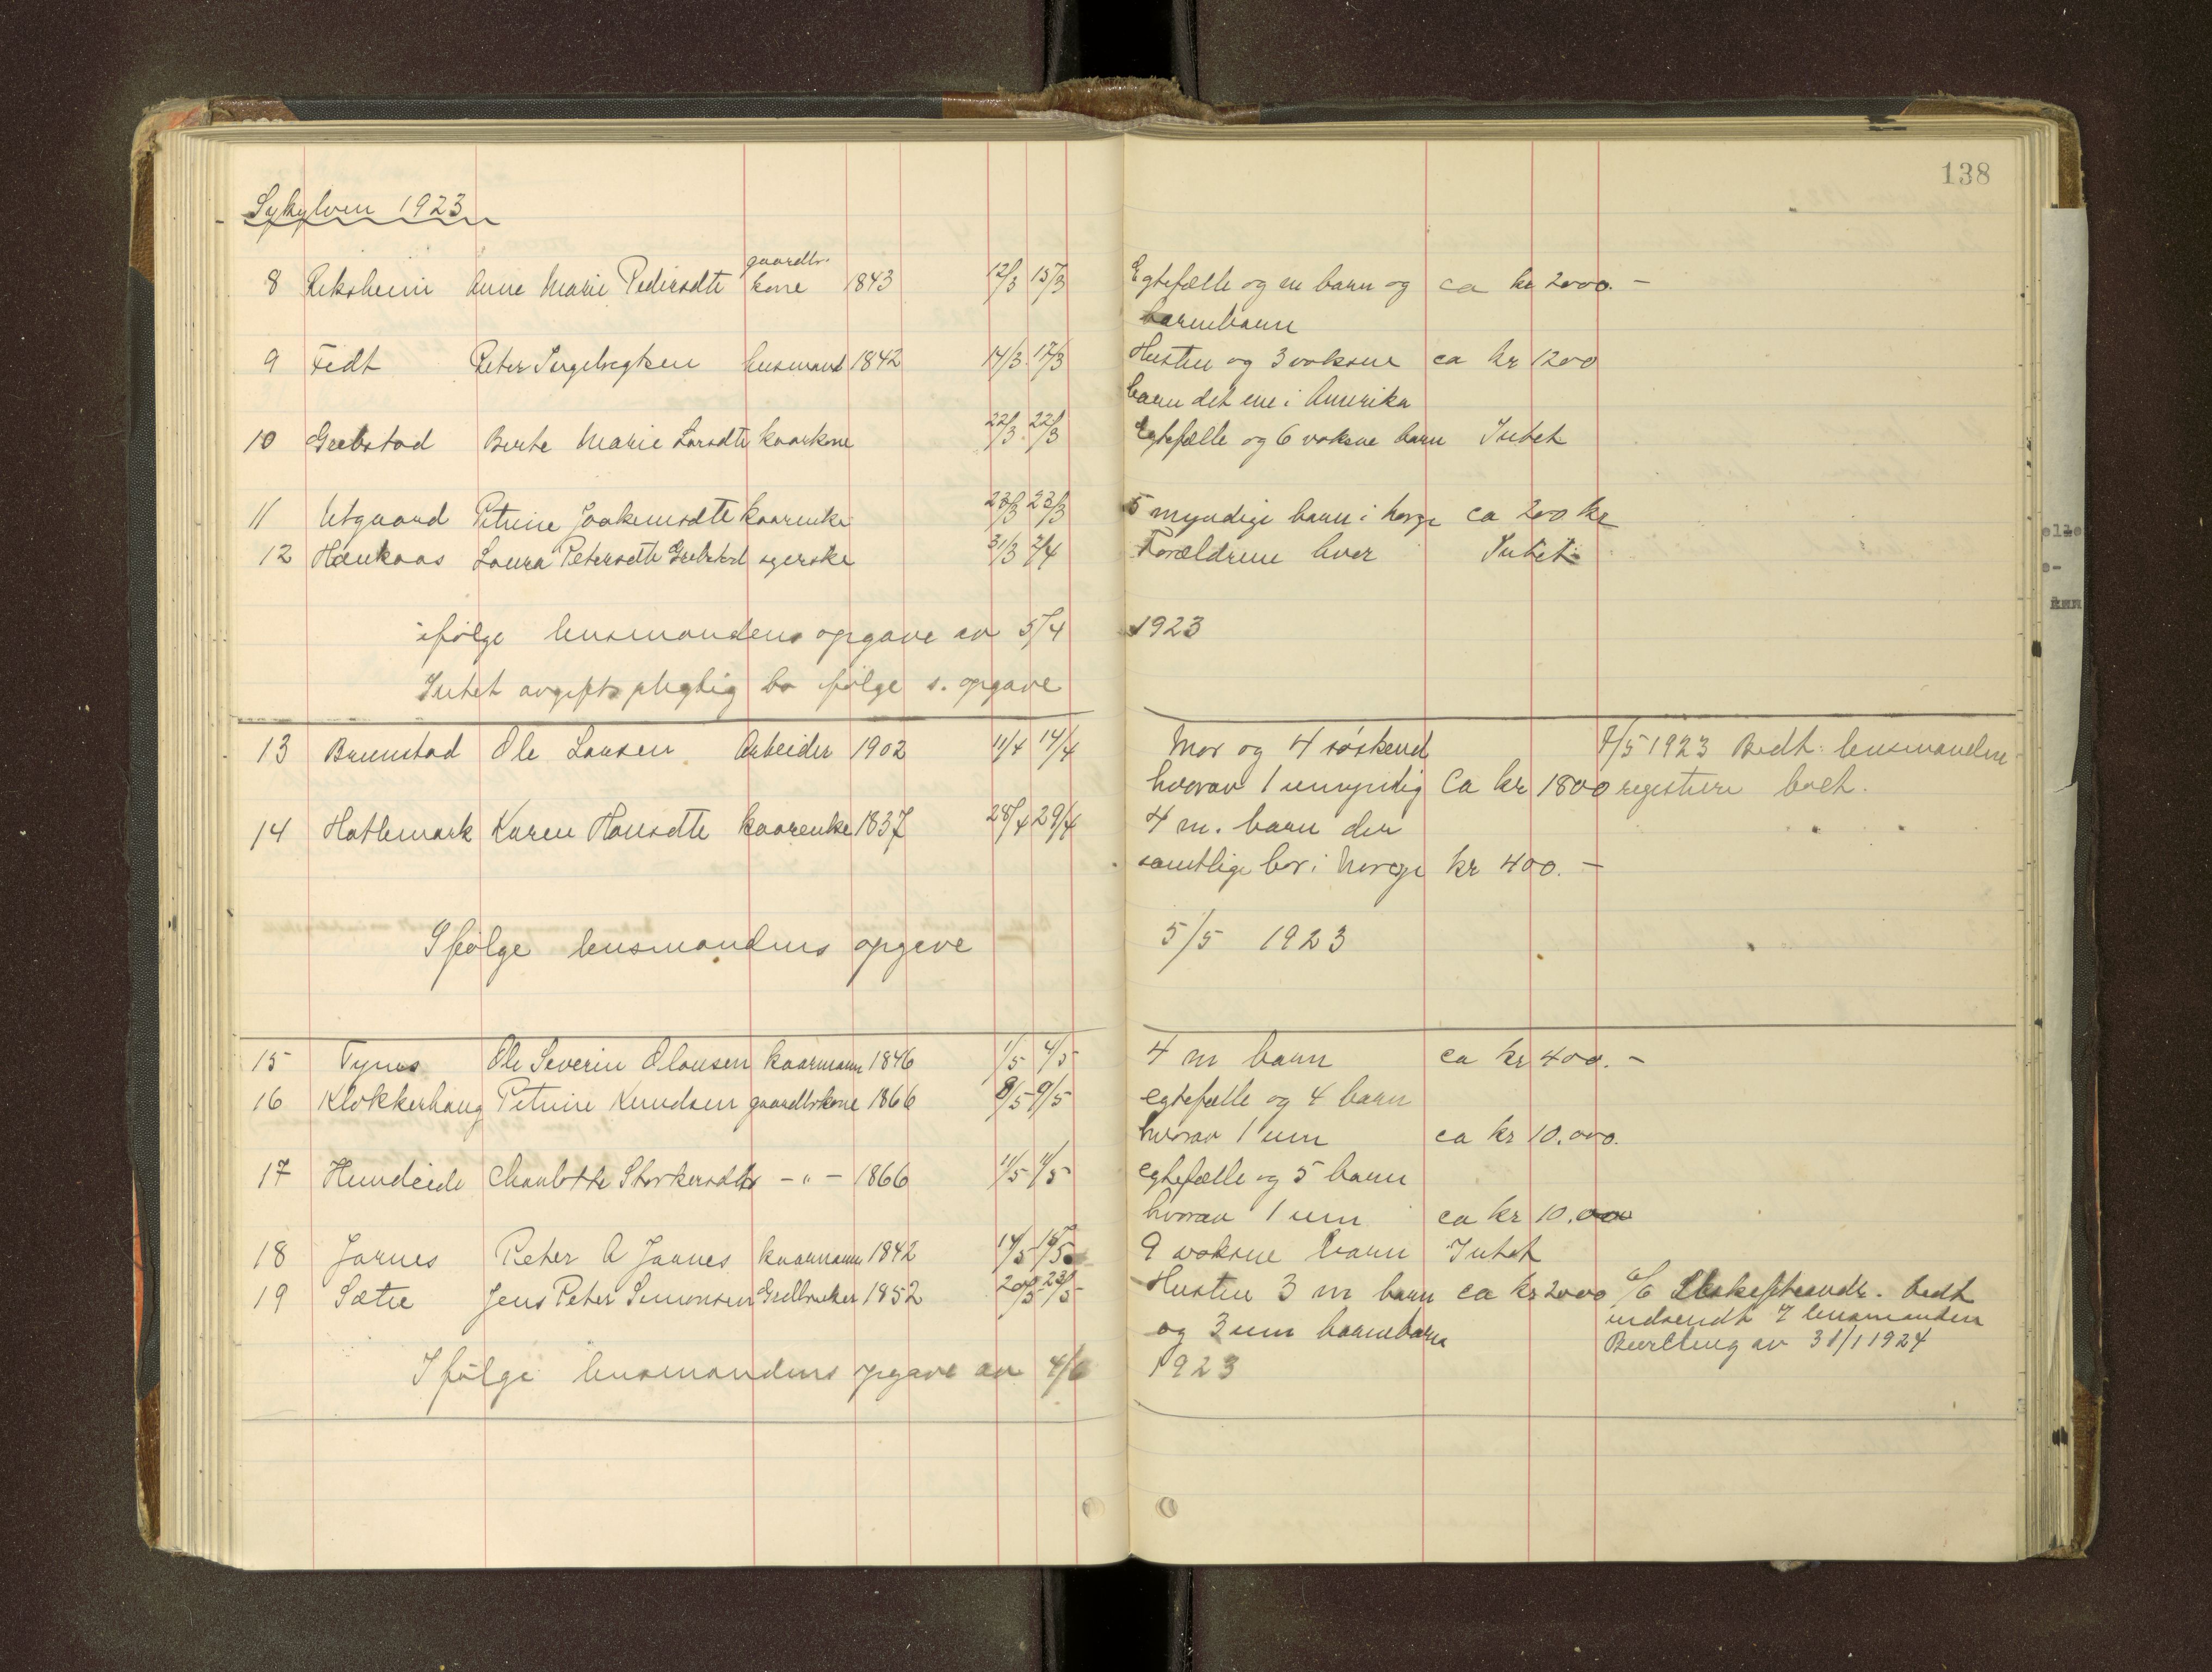 138
Sykylven 1923
8 Riksheim Anne Marie Pedersdtr gaardbr. kone 1843 12/3 15/3 Egtefælle og en barn og ca kr 2000.-
barnebarn
9 Fedt Peter Ingebregtsen husmand 1842 14/3 17/3 Hustru og 3 voksne ca kr 1200
barn det ene i Amerika
10 Grebstad Berte Marie Larsdtr kaarkone 22/3 22/3 Egtefælle og 6 voksne barn Intet
11 Utgaard Petrine Joakimsdtr kaarenke 23/3 23/3 5 myndige barn i Norge ca 200 kr
12 Haukaas Laura Petersdtr Grebstad syerske 31/3 2/4 Forældrene lever Intet
ifølge lensmandens opgave av 5/4 1923
Intet avgiftspligtig bo ifølge s. opgave
13 Brunstad Ole Larsen Arbeider 1902 11/4 14/4 Mor og 4 søskend 7/5 1923 Bedt lensmanden
hvorav 1 umyndig Ca kr 1800 registrere boet.
14 Hatlemark Karen Hansdtr kaarenke 1837 28/4 29/4 4 m. barn der
samtlige bor i Norge kr 400.-
Ifølge lensmandens opgave 5/5 1923
15 Tynes Ole Severin Olausen kaarmann 1846 1/5 4/5 4 m barn ca kr 400.-
16 Klokkerhaug Petrine Knudsen gaardbrkone 1866 8/5 9/5 egtefælle og 4 barn
hvorav 1 um ca kr 10.000.
17 Hundeide Charlotte Storkersdtr -"- 1866 11/5 11/5 egtefælle og 5 barn
hvorav 1 um ca kr 10.000
18 Jarnes Peter A Jarnes kaarmann 1842 14/5 16/5 9 voksne barn Intet
19 Sætre Jens Peter Simonsen Grdbruker 1852 20/5 23/5 Hustru 3 m barn ca kr 2000 6/6 Skifteandr. bedt
og 3 um barnebarn indsendt lensmanden
Bevilling av 31/1 1924
Ifølge lensmandens opgave av 4/6 1923